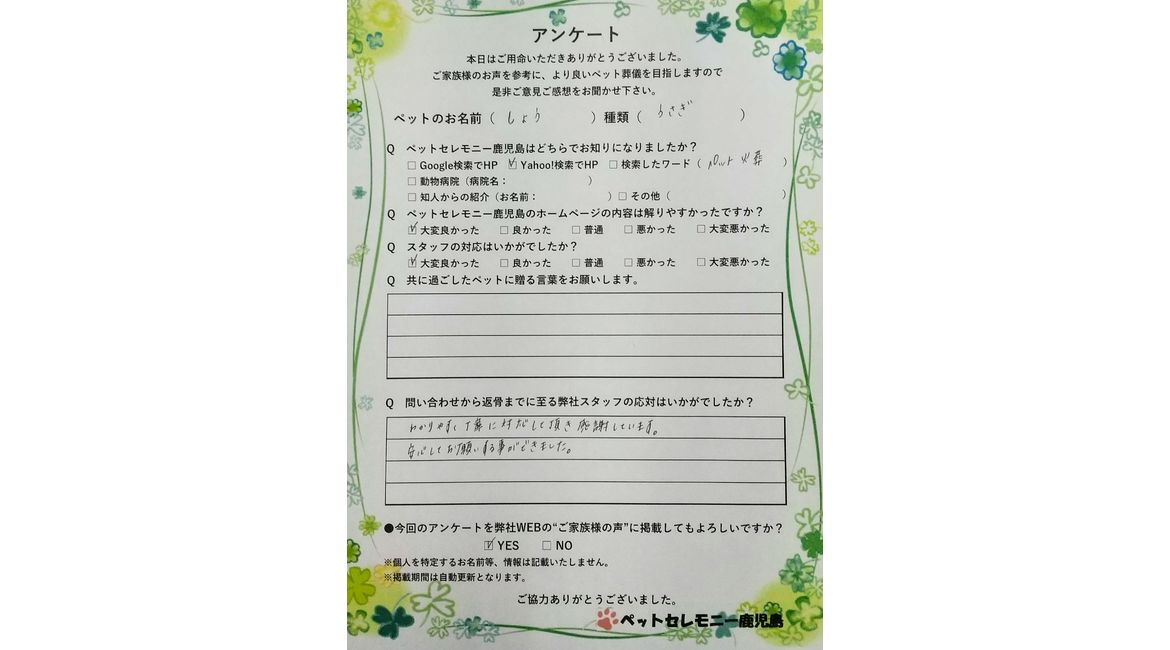 アンケート
本日はご用命いただきありがとうございました。
ご家族様のお声を参考に、より良いペット葬儀を目指しますので
是非ご意見ご感想をお聞かせ下さい。
ペットのお名前（ しょう ）種類（ うさぎ ）
Q ペットセレモニー鹿児島はどちらでお知りになりましたか？
□ Google検索でHP ☑ Yahoo!検索でHP □ 検索したワード（ ペット 火葬 ）
□ 動物病院（病院名： ）
□ 知人からの紹介（お名前： ）□ その他（ ）
Q ペットセレモニー鹿児島のホームページの内容は解りやすかったですか？
☑ 大変良かった □ 良かった □ 普通 □ 悪かった □ 大変悪かった
Q スタッフの対応はいかがでしたか？
☑ 大変良かった □ 良かった □ 普通 □ 悪かった □ 大変悪かった
Q 共に過ごしたペットに贈る言葉をお願いします。
Q 問い合わせから返骨までに至る弊社スタッフの応対はいかがでしたか？
わかりやすく丁寧に対応して頂き感謝しています。
安心してお願いする事ができました。
●今回のアンケートを弊社WEBの“ご家族様の声”に掲載してもよろしいですか？
☑ YES □ NO
※個人を特定するお名前等、情報は記載いたしません。
※掲載期間は自動更新となります。
ご協力ありがとうございました。
ペットセレモニー鹿児島